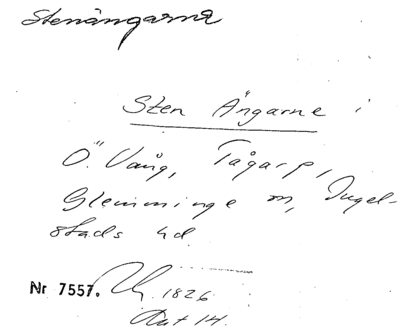 Stenängarna
Sten Ängarne i
Ö. Vång, Tågarp,
Glemminge sn, Ingel-
stads hd.
Nr 7557. 1826
Akt 14.